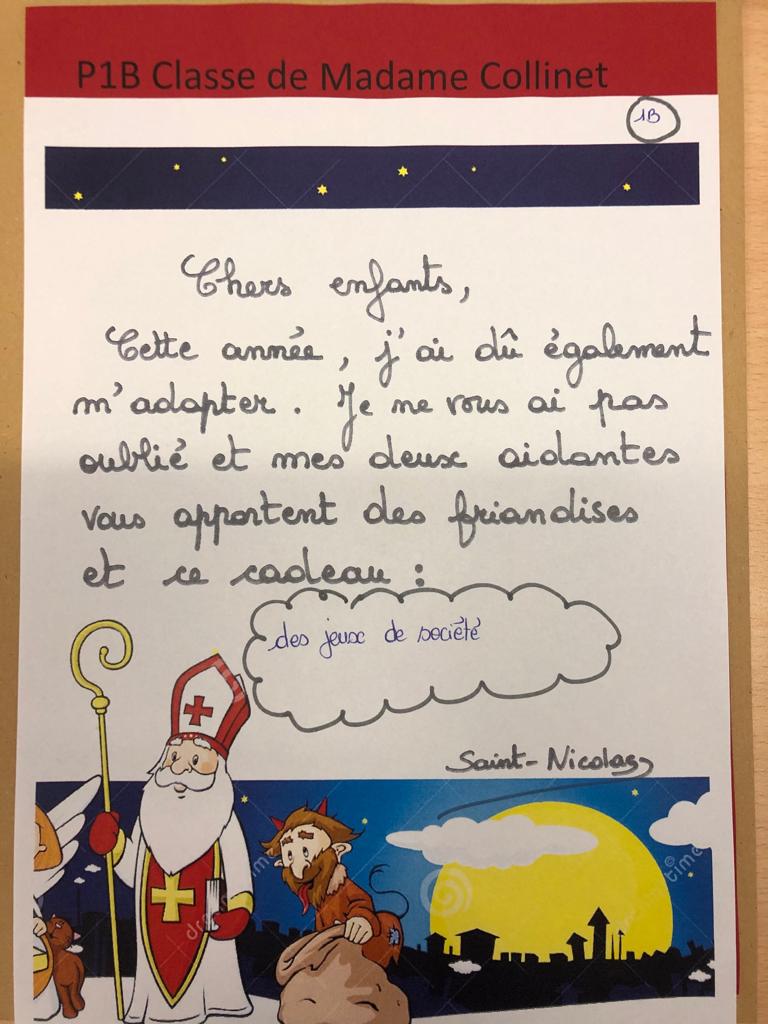 P1B Classe de Madame Collinet
1B
Chers enfants,
Cette année, j'ai dû également
m'adapter. Je ne vous ai pas
oublié et mes deux aidantes
vous apportent des friandises
et ce cadeau :
des jeux de société
Saint-Nicolas